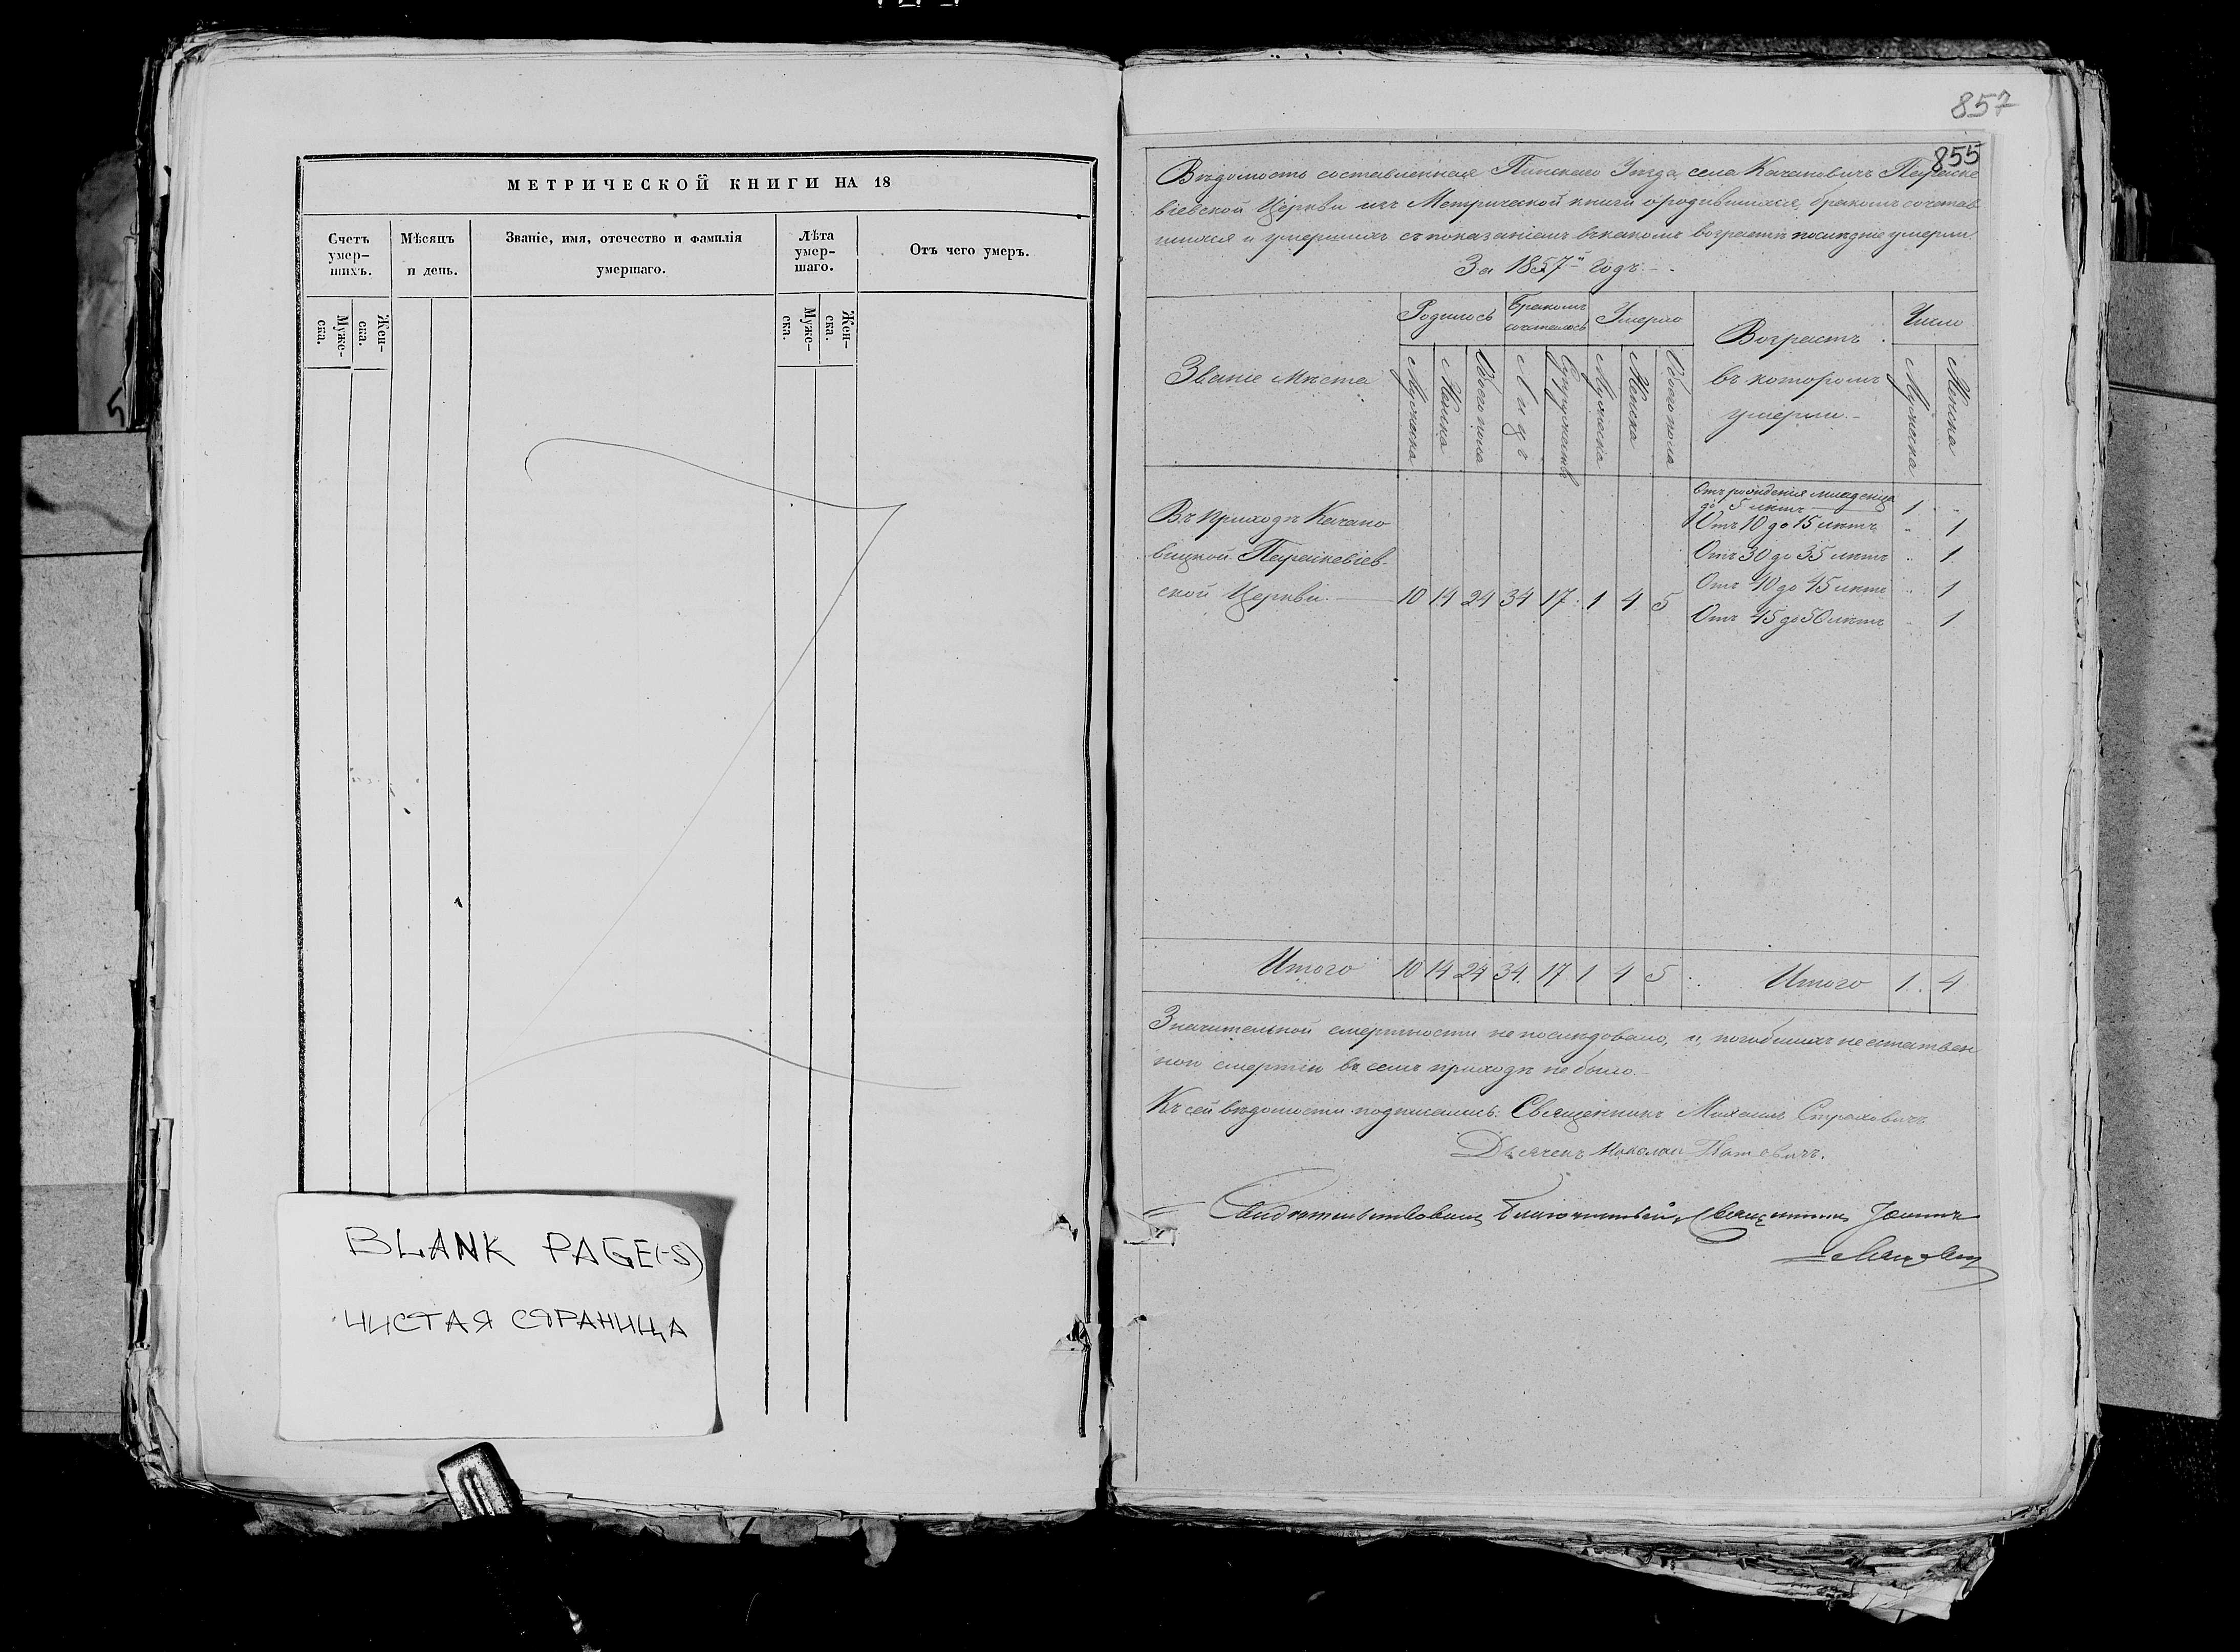 МЕТРИЧЕСКОЙ КНИГИ НА 18
Счетъ умер-шихъ.
Мѣсяцъ и день.
Званіе, имя, отечество и фамилія умершаго.
Лѣта умер-шаго.
Отъ чего умеръ.
Муже-ска.
Жен-ска.
Муже-ска.
Жен-ска.
5
BLANK PAGE(-S)
ЧИСТАЯ СТРАНИЦА
857
855
Вѣдомость составленная Пинскаго Уѣзда, села Качановичъ Параске
віевской Церкви изъ Метрической книги о родившихся, бракомъ сочетав
шихся и умершихъ съ показаніемъ въ какомъ возрастѣ послѣдніе умерли.
За 1857й годъ.
Званіе Мѣста
Родилось
Бракомъ сочеталось
Умерло
Возрастъ въ которомъ умерли.
Число
Мужеска
Женска
Обоего пола
Лицъ
Супружествъ
Мужеска
Женска
Обоего пола
Мужеска
Женска
Въ приходѣ Качано
вицкой Параскевіев-
ской Церкви. 10 14 24 34 17 1 4 5
Отъ рожденія младенца до 5 лѣтъ 1 "
Отъ 10 до 15 лѣтъ " 1
Отъ 30 до 35 лѣтъ " 1
Отъ 40 до 45 лѣтъ " 1
Отъ 45 до 50 лѣтъ " 1
Итого 10 14 24 34 17 1 4 5 Итого 1 4
Значительной смертности не послѣдовало, и погибшихъ неестествен
ною смертію въ семъ приходѣ не было.
Къ сей вѣдомости подписались: Священникъ Михаилъ Страховичъ
Дьячекъ Николай
Свидѣтельствовалъ Благочинный, Священникъ Іоаннъ